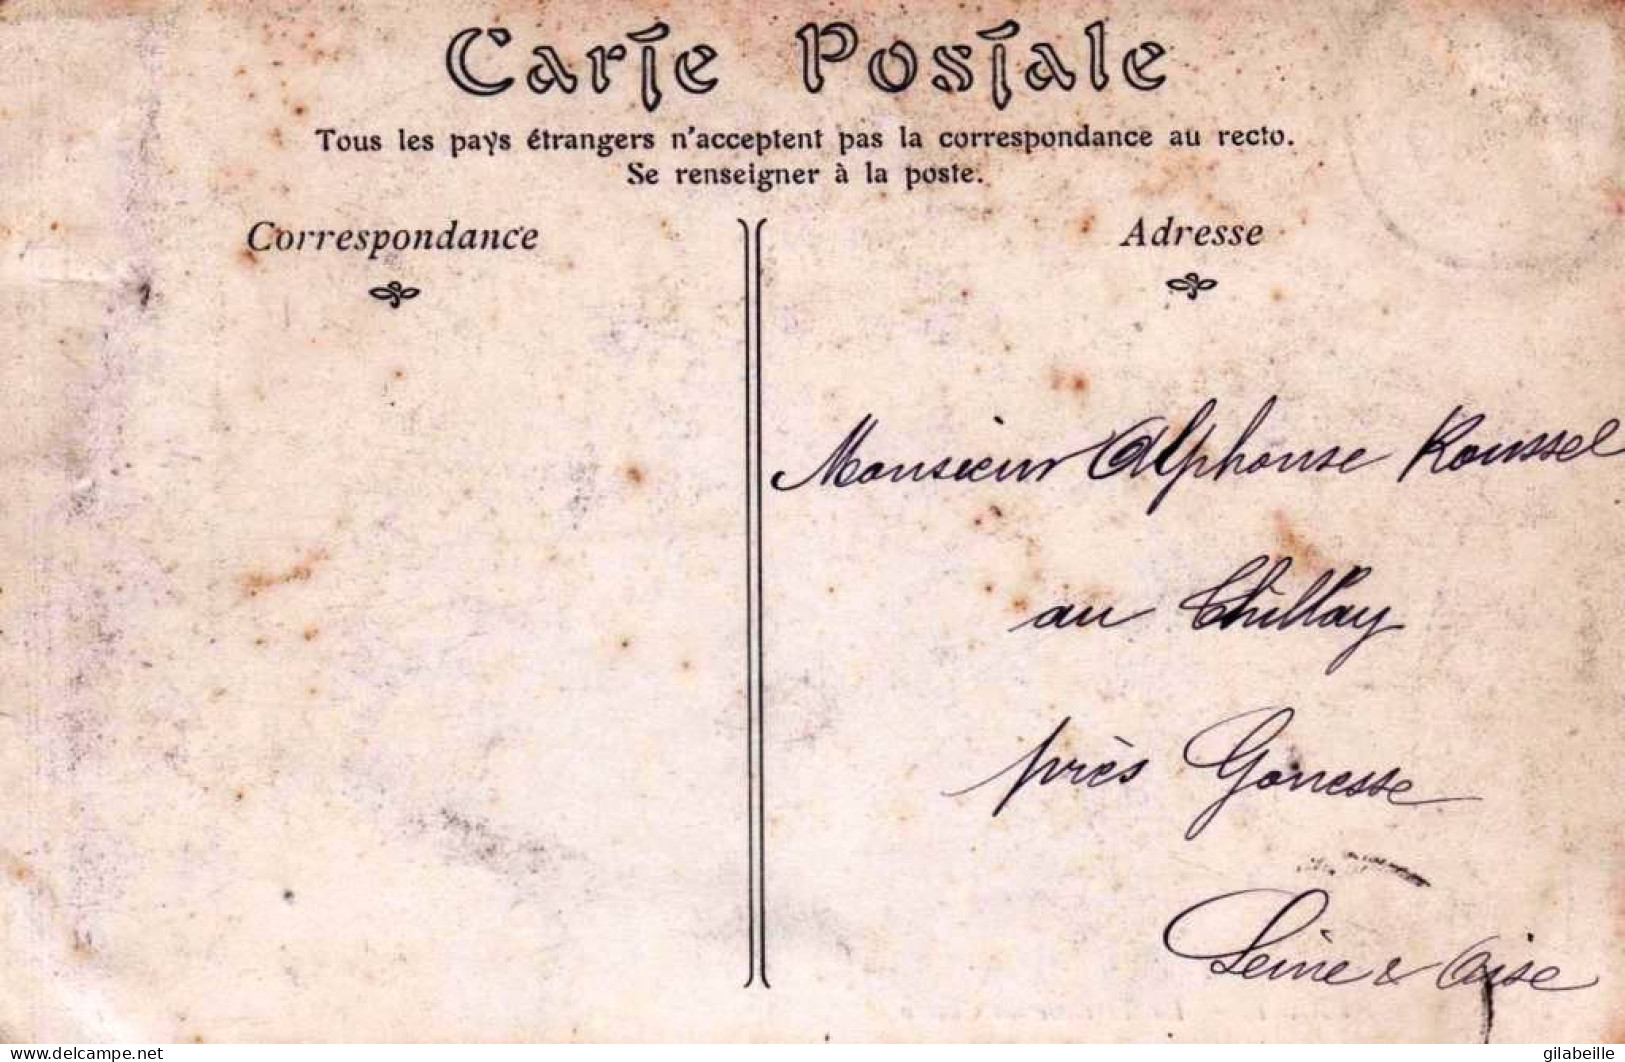 Carte Postale
Tous les pays étrangers n'acceptent pas la correspondance au recto.
Se renseigner à la poste.
Correspondance
Adresse
Monsieur Alphonse Roussel
au Thillay
près Gonesse
Seine & Oise
delcampe.net
gilabeille